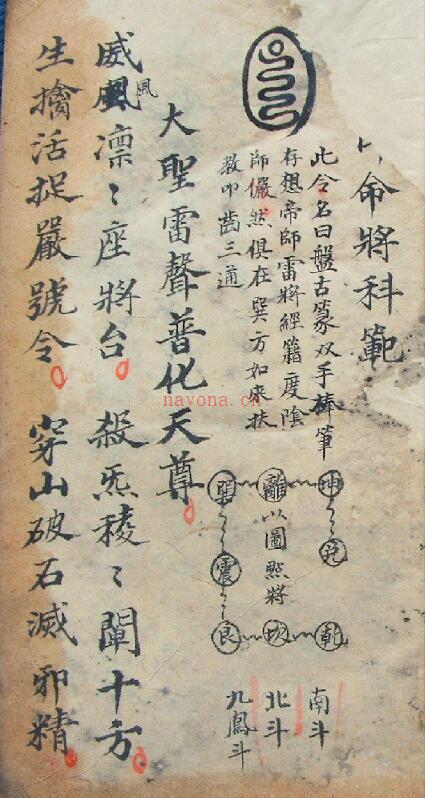 命將科範
此令名曰盤古篆双手捧筆
存想帝師雷將經籍度陰
師儼然俱在巽方如來扶
教叩齒三通
坤 兌 乾
離 以圖熙將 坎
巽 震 艮
南斗
北斗
九鳳斗
大聖雷聲普化天尊
威風凛〻座將台 殺炁稜〻闡十方
風
生擒活捉嚴號令 穿山破石滅邪精
navona.cn